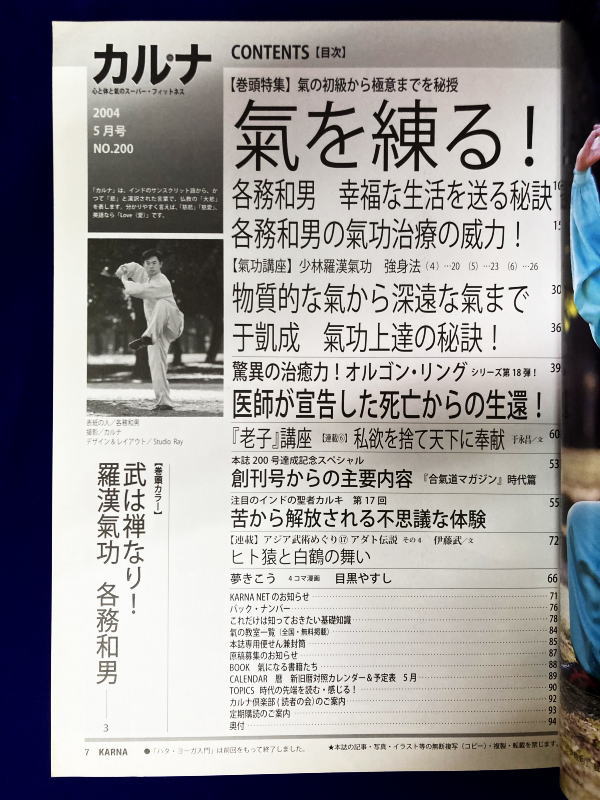 カルナ
心と体と氣のスーパー・フィットネス
2004
5月号
NO.200
「カルナ」は、インドのサンスクリット語から、か
つて「悲」と漢訳された言葉で、仏教の「大悲」
を表します。分かりやすく言えば、「慈悲」、「慈愛」、
英語なら「Love（愛）」です。
表紙の人／各務和男
撮影／カルナ
デザイン＆レイアウト／Studio Ray
【巻頭カラー】
武は禅なり！
羅漢氣功　各務和男
3
CONTENTS【目次】
【巻頭特集】氣の初級から極意までを秘授
氣を練る！
各務和男　幸福な生活を送る秘訣
各務和男の氣功治療の威力！
【氣功講座】少林羅漢氣功　強身法（4）…20（5）…23（6）…26
物質的な氣から深遠な氣まで 30
于凱成　氣功上達の秘訣！ 36
驚異の治癒力！オルゴン・リング シリーズ第18弾！ 39
医師が宣告した死亡からの生還！
『老子』講座【連載⑥】私欲を捨て天下に奉献 于永昌／文 60
本誌200号達成記念スペシャル 53
創刊号からの主要内容『合氣道マガジン』時代篇
注目のインドの聖者カルキ　第17回 55
苦から解放される不思議な体験
【連載】アジア武術めぐり⑰ アダト伝説 その4　伊藤武／文 72
ヒト猿と白鶴の舞い
夢きこう　4コマ漫画　目黒やすし 66
KARNA NETのお知らせ 71
バック・ナンバー 76
これだけは知っておきたい基礎知識 78
氣の教室一覧（全国・無料掲載） 84
本誌専用便せん兼封筒 85
原稿募集のお知らせ 87
BOOK　氣になる書籍たち 88
CALENDAR　暦　新旧暦対照カレンダー＆予定表　5月 89
TOPICS　時代の先端を読む・感じる！ 90
カルナ倶楽部（読者の会）のご案内 92
定期購読のご案内 93
奥付 94
7 KARNA ●「ハタ・ヨーガ入門」は前回をもって終了しました。 ★本誌の記事・写真・イラスト等の無断複写（コピー）・複製・転載を禁じます。